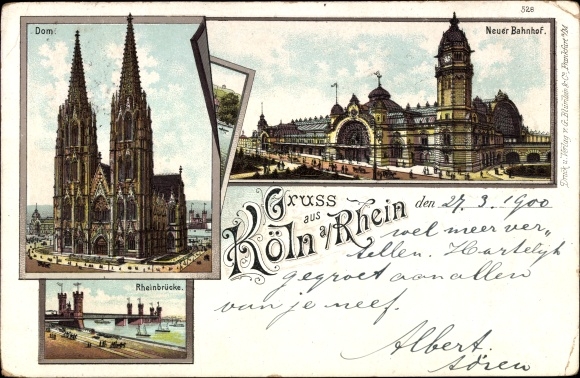 528
Dom.
Neuer Bahnhof.
Gruss
aus
Köln a/Rhein
den 27.3.1900
wel meer ver„
tellen. Hartelijk
gegroet aan allen
van je neef.
Albert.
Rheinbrücke.
Druck u. Verlag v. G. Blümlein & Co., Frankfurt a/M.